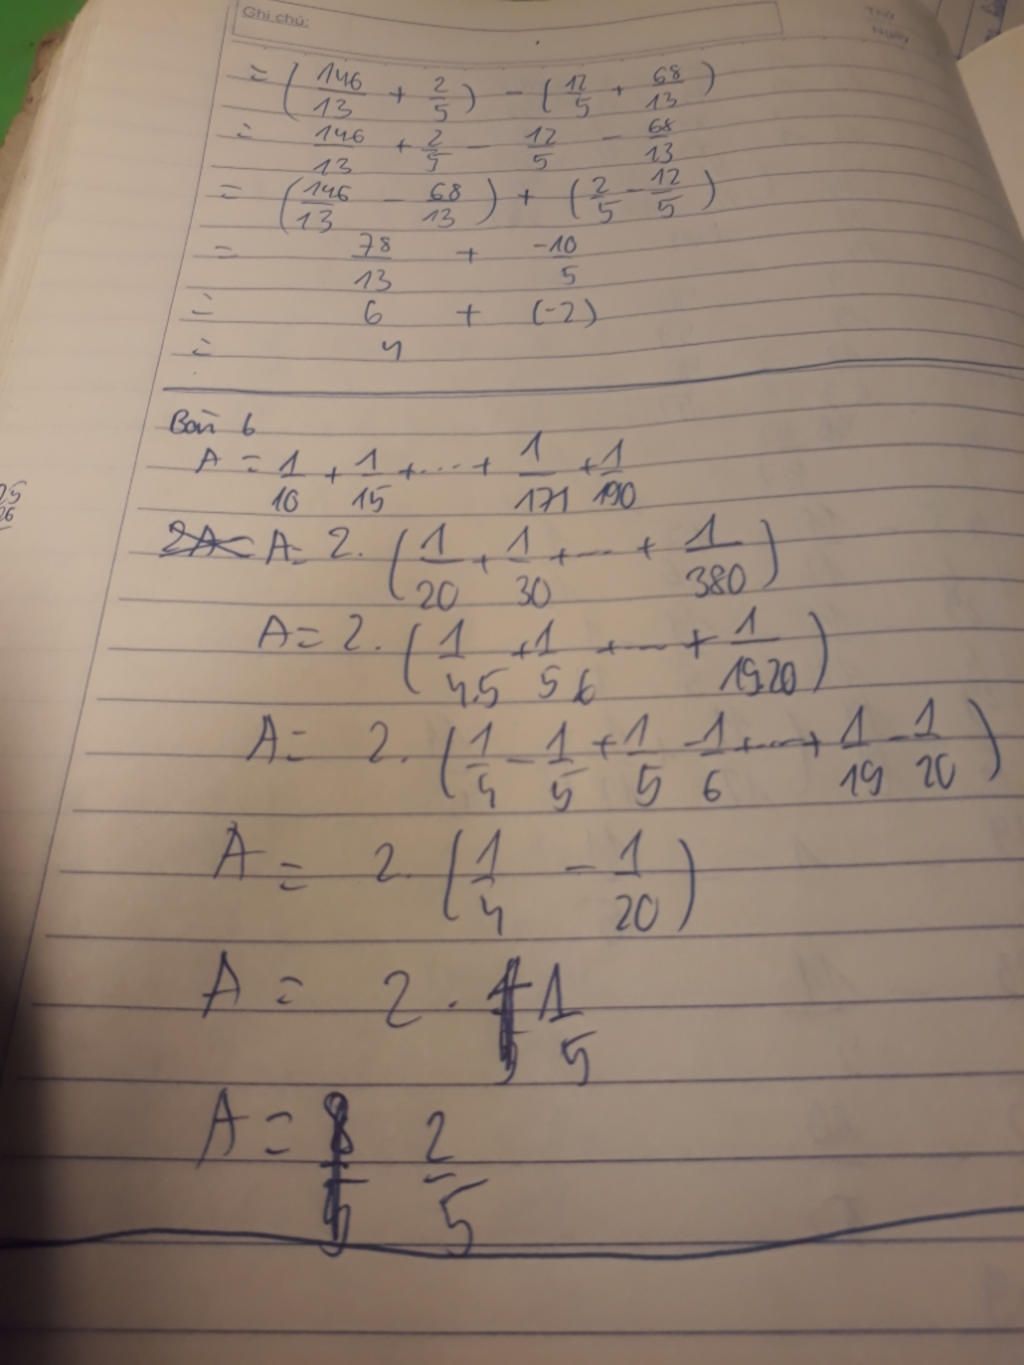 Ghi chú:
= (146/13 + 2/5) - (12/5 + 68/13)
= 146/13 + 2/5 - 12/5 - 68/13
= (146/13 - 68/13) + (2/5 - 12/5)
= 78/13 + -10/5
= 6 + (-2)
= 4
Bài 6
A = 1/10 + 1/15 + .... + 1/171 + 1/190
2A= A= 2. (1/20 + 1/30 + ... + 1/380)
A= 2. (1/4.5 + 1/5 6 + .... + 1/19.20)
A= 2. (1/4 - 1/5 + 1/5 - 1/6 + .... + 1/19 - 1/20)
A= 2. (1/4 - 1/20)
A= 2 . 1/5
A= 2/5